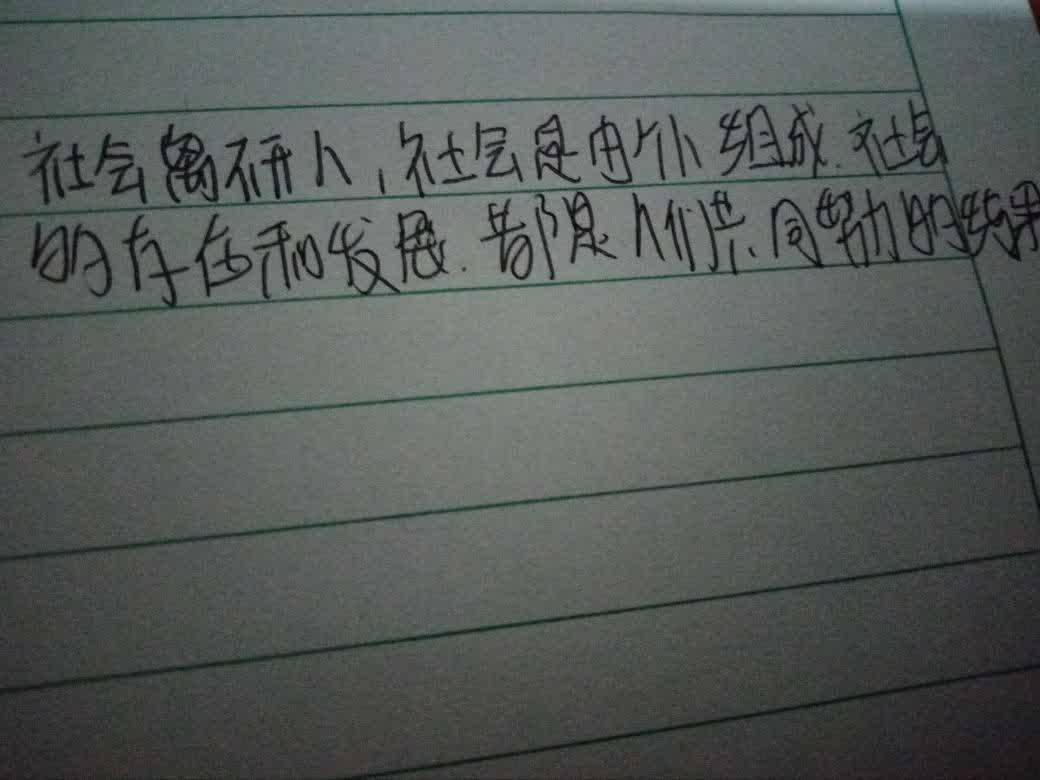 社会离不开人,社会是由个人组成.社会
的存在和发展.都是人们共同努力的结果